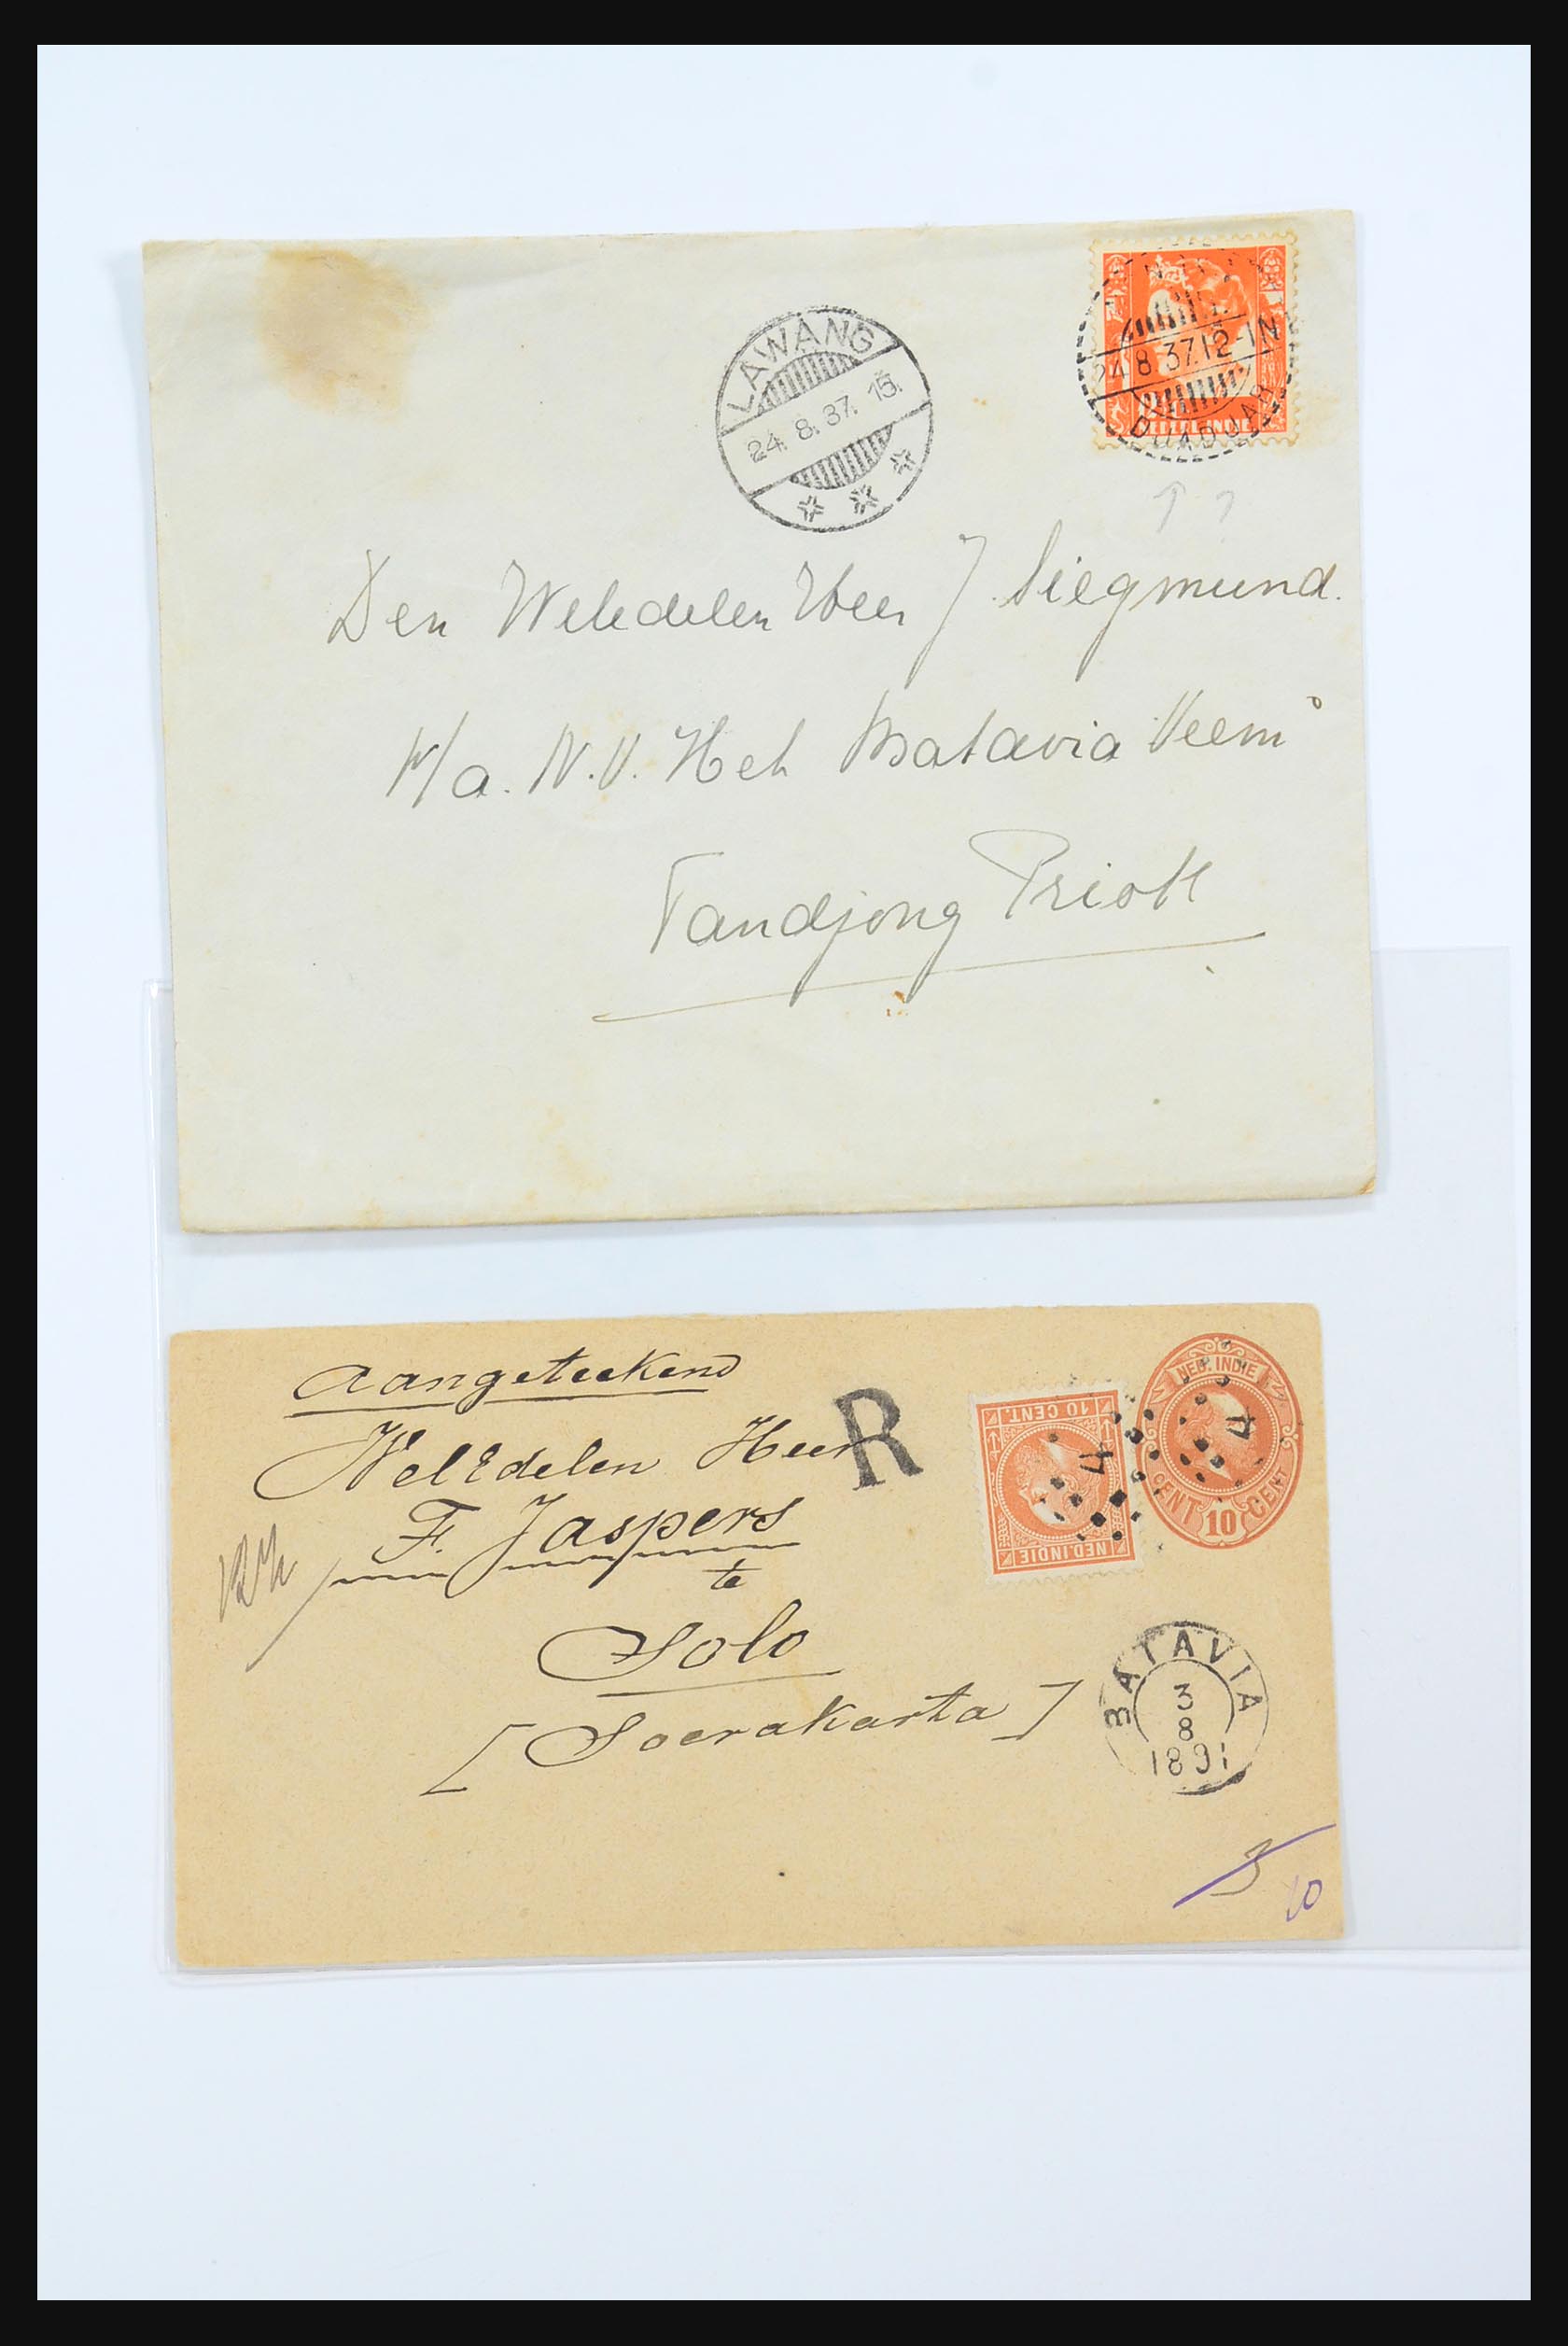 LAWANG
24.8.37.15.
24.8.37.12-1N
NED. INDIE
Den Weledelen Heer J. Siegmund.
p/a. N.V. Het Batavia Veem
Tandjong Priok
Aangeteekend
R
WelEdelen Heer
F. Jaspers
te
Solo
[Soerakarta]
10 CENT.
4
NED. INDIE
NED. INDIE
4
CENT 10 CENT
BATAVIA
3
8
1891
3
10